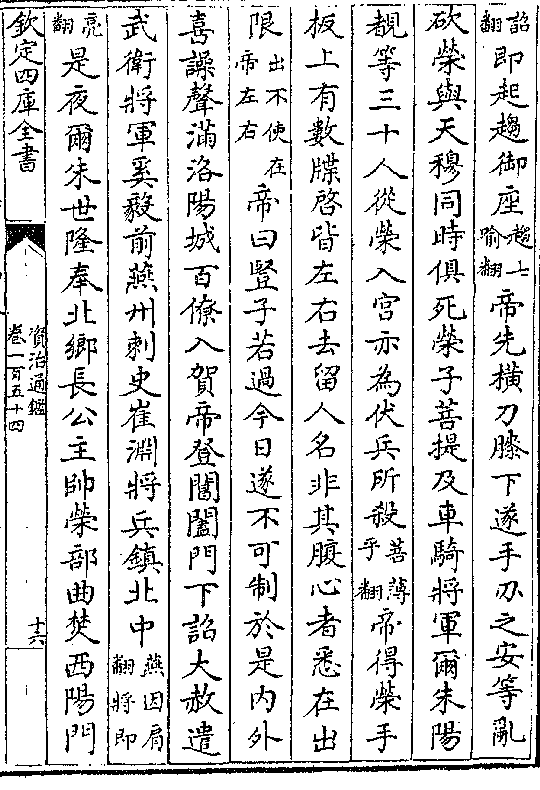 詔
翻即起趨御座趨七
喻翻帝先橫刀膝下遂手刃之安等亂
砍榮與天穆同時俱死榮子菩提及車騎將軍爾朱陽
覩等三十人從榮入宮亦為伏兵所殺菩薄
乎翻帝得榮手
板上有數牒啓皆左右去留人名非其腹心者悉在出
限出不使在
帝左右帝曰豎子若過今日遂不可制於是內外
喜譟聲滿洛陽城百僚入賀帝登閶闔門下詔大赦遣
武衛將軍奚毅前燕州刺史崔淵將兵鎮北中燕因肩
翻將即
亮
翻是夜爾朱世隆奉北鄉長公主帥榮部曲焚西陽門
欽定四庫全書
資治通鑑
卷一百五十四
十六